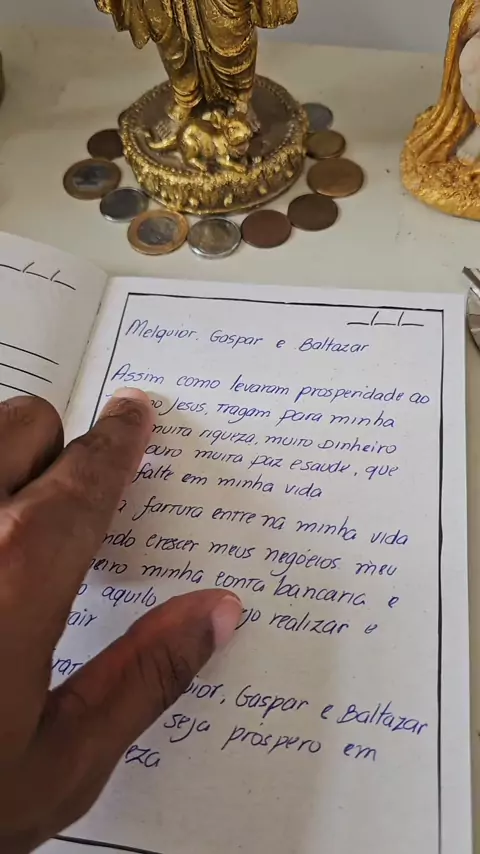 Melquior, Gaspar e Baltazar
Assim como levaram prosperidade ao
Jesus, tragam para minha
muita riqueza, muito dinheiro
ouro muita paz e saude, que
falte em minha vida
a fartura entre na minha vida
ndo crescer meus negócios meu
eiro minha conta bancaria e
o aquilo jo realizar e
air
rar
ior, Gaspar e Baltazar
seja prospero em
eza